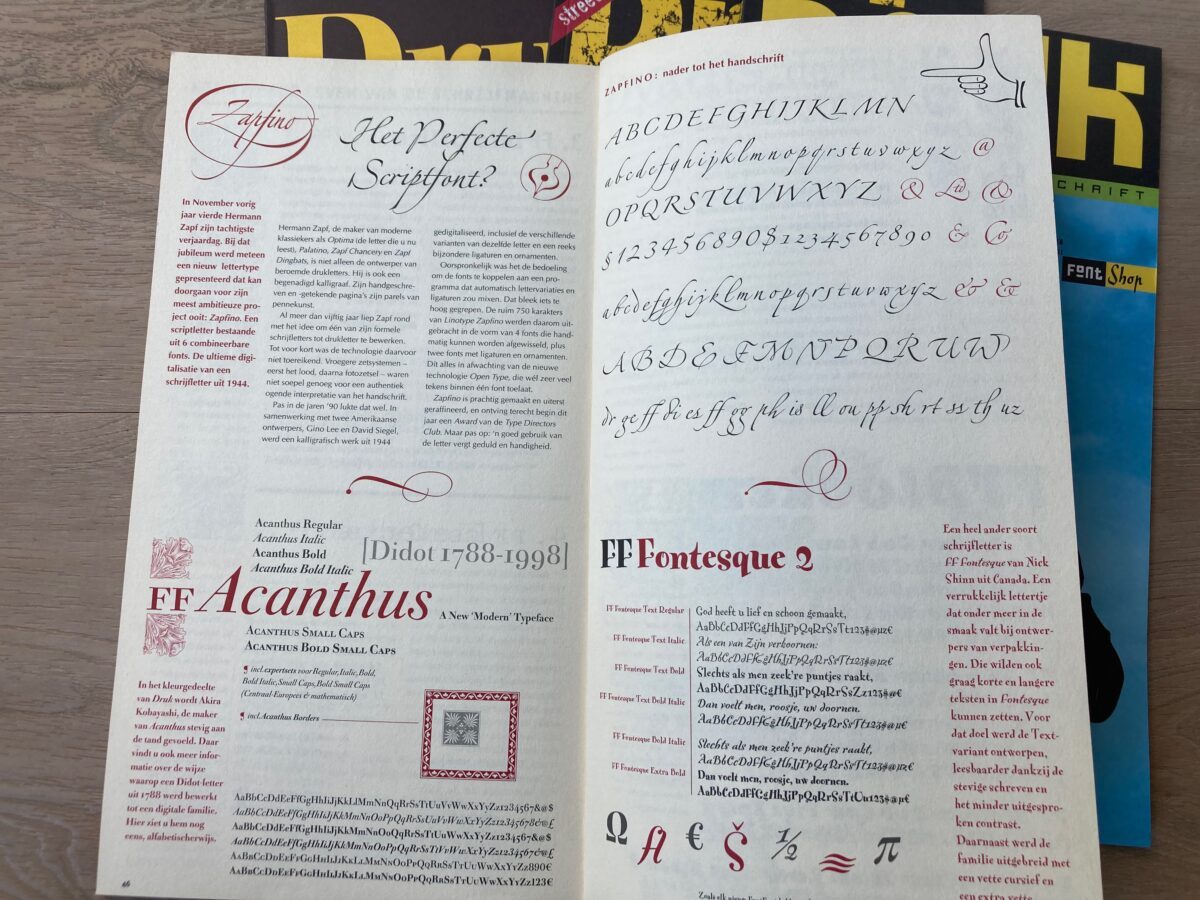 Druk
street
CHRIFT
FONT Shop
Zapfino
Het Perfecte
Scriptfont?
In November vorig
jaar vierde Hermann
Zapf zijn tachtigste
verjaardag. Bij dat
jubileum werd meteen
een nieuw lettertype
gepresenteerd dat kan
doorgaan voor zijn
meest ambitieuze pro-
ject ooit: Zapfino. Een
scriptletter bestaande
uit 6 combineerbare
fonts. De ultieme digi-
talisatie van een
schrijfletter uit 1944.
Hermann Zapf, de maker van moderne
klassiekers als Optima (de letter die u nu
leest), Palatino, Zapf Chancery en Zapf
Dingbats, is niet alleen de ontwerper van
beroemde drukletters. Hij is ook een
begenadigd kalligraaf. Zijn handgeschre-
ven en -getekende pagina's zijn parels van
pennekunst.
Al meer dan vijftig jaar liep Zapf rond
met het idee om één van zijn formele
schrijfletters tot drukletter te bewerken.
Tot voor kort was de technologie daarvoor
niet toereikend. Vroegere zetsystemen –
eerst het lood, daarna fotozetsel – waren
niet soepel genoeg voor een authentiek
ogende interpretatie van het handschrift.
Pas in de jaren '90 lukte dat wel. In
samenwerking met twee Amerikaanse
ontwerpers, Gino Lee en David Siegel,
werd een kalligrafisch werk uit 1944
gedigitaliseerd, inclusief de verschillende
varianten van dezelfde letter en een reeks
bijzondere ligaturen en ornamenten.
Oorspronkelijk was het de bedoeling
om de fonts te koppelen aan een pro-
gramma dat automatisch lettervariaties en
ligaturen zou mixen. Dat bleek iets te
hoog gegrepen. De ruim 750 karakters
van Linotype Zapfino werden daarom uit-
gebracht in de vorm van 4 fonts die hand-
matig kunnen worden afgewisseld, plus
twee fonts met ligaturen en ornamenten.
Dit alles in afwachting van de nieuwe
technologie Open Type, die wél zeer veel
tekens binnen één font toelaat.
Zapfino is prachtig gemaakt en uiterst
geraffineerd, en ontving terecht begin dit
jaar een Award van de Type Directors
Club. Maar pas op: 'n goed gebruik van
de letter vergt geduld en handigheid.
Acanthus Regular
Acanthus Italic
Acanthus Bold
Acanthus Bold Italic
[Didot 1788-1998]
FF Acanthus
A New 'Modern' Typeface
Acanthus Small Caps
Acanthus Bold Small Caps
¶ incl. expertsets voor Regular, Italic, Bold,
Bold Italic, Small Caps, Bold Small Caps
(Centraal-Europees & mathematisch)
¶ incl. Acanthus Borders
In het kleurgedeelte
van Druk wordt Akira
Kobayashi, de maker
van Acanthus stevig aan
de tand gevoeld. Daar
vindt u ook meer infor-
matie over de wijze
waarop een Didot-letter
uit 1788 werd bewerkt
tot een digitale familie.
Hier ziet u hem nog
eens, alfabetischerwijs.
AaBbCcDdEeFfGgHhIiJjKkLlMmNnQqRrSsTtUuVvWwXxYyZz1234567&@$
AaBbCcDdEeFfGgHhIiJjKkLlMmNnOoPpQqRrSsUuVvWwXxYyZz12345678&@£
AaBbCcDdEeFfGgHhIiJjKkLlMmNnOoQqRrSsTtUuVvWwXxYyZz1234567&@$
AaBbCcDdEeFfGgHhIiJjKkLlMmNnOoPpQqRrSsTtVvWwXxYyZz1234567&@£
AaBbCcDdEeFfGgHhIiJjKkLlMmNnOoPpQqRrSsTtUuVvWwXxYyZz890€
AaBbCcDdEeFfGgHhIiJjKkLlMmNnOoPpQqRrSsTtUuVvWwXxYyZz123€
46
ZAPFINO: nader tot het handschrift
ABCDEFGHIJKLMN
abcdefghijklmnopqrstuvwxyz @
OPQRSTUVWXYZ & Ltd &
$1234567890$1234567890 & Co
abcdefghijklmnopqrstuvwxyz & &
ABDEFMNPQRUW
dr ge ff di es ff gg ph is ll ou pp sh rt ss th uz
FF Fontesque 2
FF Fontesque Text Regular
God heeft u lief en schoon gemaakt,
AaBbCcDdFfGgHhJjPpQqRrSsTt123$@µz€
FF Fontesque Text Italic
Als een van Zijn verkoornen:
AaBbCcDdFfGgHhJjPpQqRrSsTt123$@µz€
FF Fontesque Text Bold
Slechts als men zeek're puntjes raakt,
AaBbCcDdFfGgHhJjPpQqRrSsZz123$@µz€
FF Fontesque Text Bold Italic
Dan voelt men, roosje, uw doornen.
AaBbCcDdFfGgHhJjPpQqRrSsTt123$@µ€
FF Fontesque Bold Italic
Slechts als men zeek're puntjes raakt,
AaBbCcDdFfGgHhJjPpQqRrSsTt123$@µz€
FF Fontesque Extra Bold
Dan voelt men, roosje, uw doornen.
AaBbCcDdFfGgHhJjPpQqRrSsTtUu123$@µ€
Ω A € Š ½ π
Een heel ander soort
schrijfletter is
FF Fontesque van Nick
Shinn uit Canada. Een
verrukkelijk lettertje
dat onder meer in de
smaak valt bij ontwer-
pers van verpakkin-
gen. Die wilden ook
graag korte en langere
teksten in Fontesque
kunnen zetten. Voor
dat doel werd de Text-
variant ontworpen,
leesbaarder dankzij de
stevige schreven en
het minder uitgespro-
ken contrast.
Daarnaast werd de
familie uitgebreid met
een vette cursief en
een extra vette